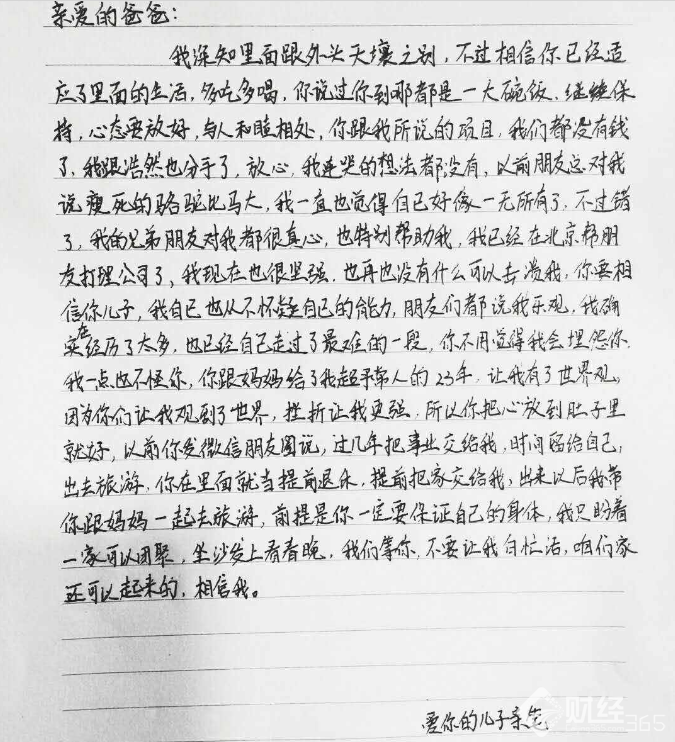 亲爱的爸爸:
我深知里面跟外头天壤之别，不过相信你已经适
应了里面的生活，多吃多喝，你说过你到哪都是一大碗饭。继续保
持，心态要放好，与人和睦相处，你跟我所说的项目，我们都没有钱
了，我跟浩然也分手了，放心，我连哭的想法都没有，以前朋友总对我
说瘦死的骆驼比马大，我一直也觉得自己好像一无所有了，不过错
了，我的兄弟朋友对我都很真心，也特别帮助我，我已经在北京帮朋
友打理公司了，我现在也很坚强，也再也没有什么可以击溃我，你要相
信你儿子，我自己也从不怀疑自己的能力，朋友们都说我乐观，我确
实在经历了太多，也已经自己走过了最难的一段，你不用觉得我会埋怨你.
我一点也不怪你，你跟妈妈给了我超乎常人的23年，让我有了世界观，
因为你们让我观到了世界，挫折让我更强，所以你把心放到肚子里
就好，以前你发微信朋友圈说，过几年把事业交给我，时间留给自己，
出去旅游，你在里面就当提前退休，提前把家交给我，出来以后我带
你跟妈妈一起去旅游，前提是你一定要保证自己的身体，我只盼着
一家可以团聚，坐沙发上看春晚，我们等你，不要让我白忙活，咱们家
还可以起来的，相信我。
爱你的儿子
财经365